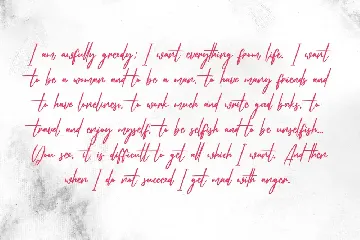 I am awfully greedy; I want everything from life. I want
to be a woman and to be a man, to have many friends and
to have loneliness, to work much and write good books, to
travel and enjoy myself, to be selfish and to be unselfish...
You see, it is difficult to get all which I want. And then
when I do not succeed I get mad with anger.